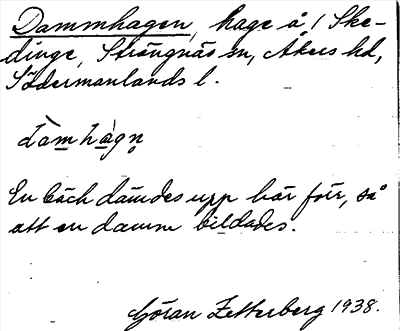 Dammhagen, hage å 1 Ske-
dinge, Strängnäs sn, Åkers hd,
Södermanlands l.
dàmhàgn̥
En bäck dämdes upp här förr, så
att en damm bildades.
Göran Zetterberg 1938.